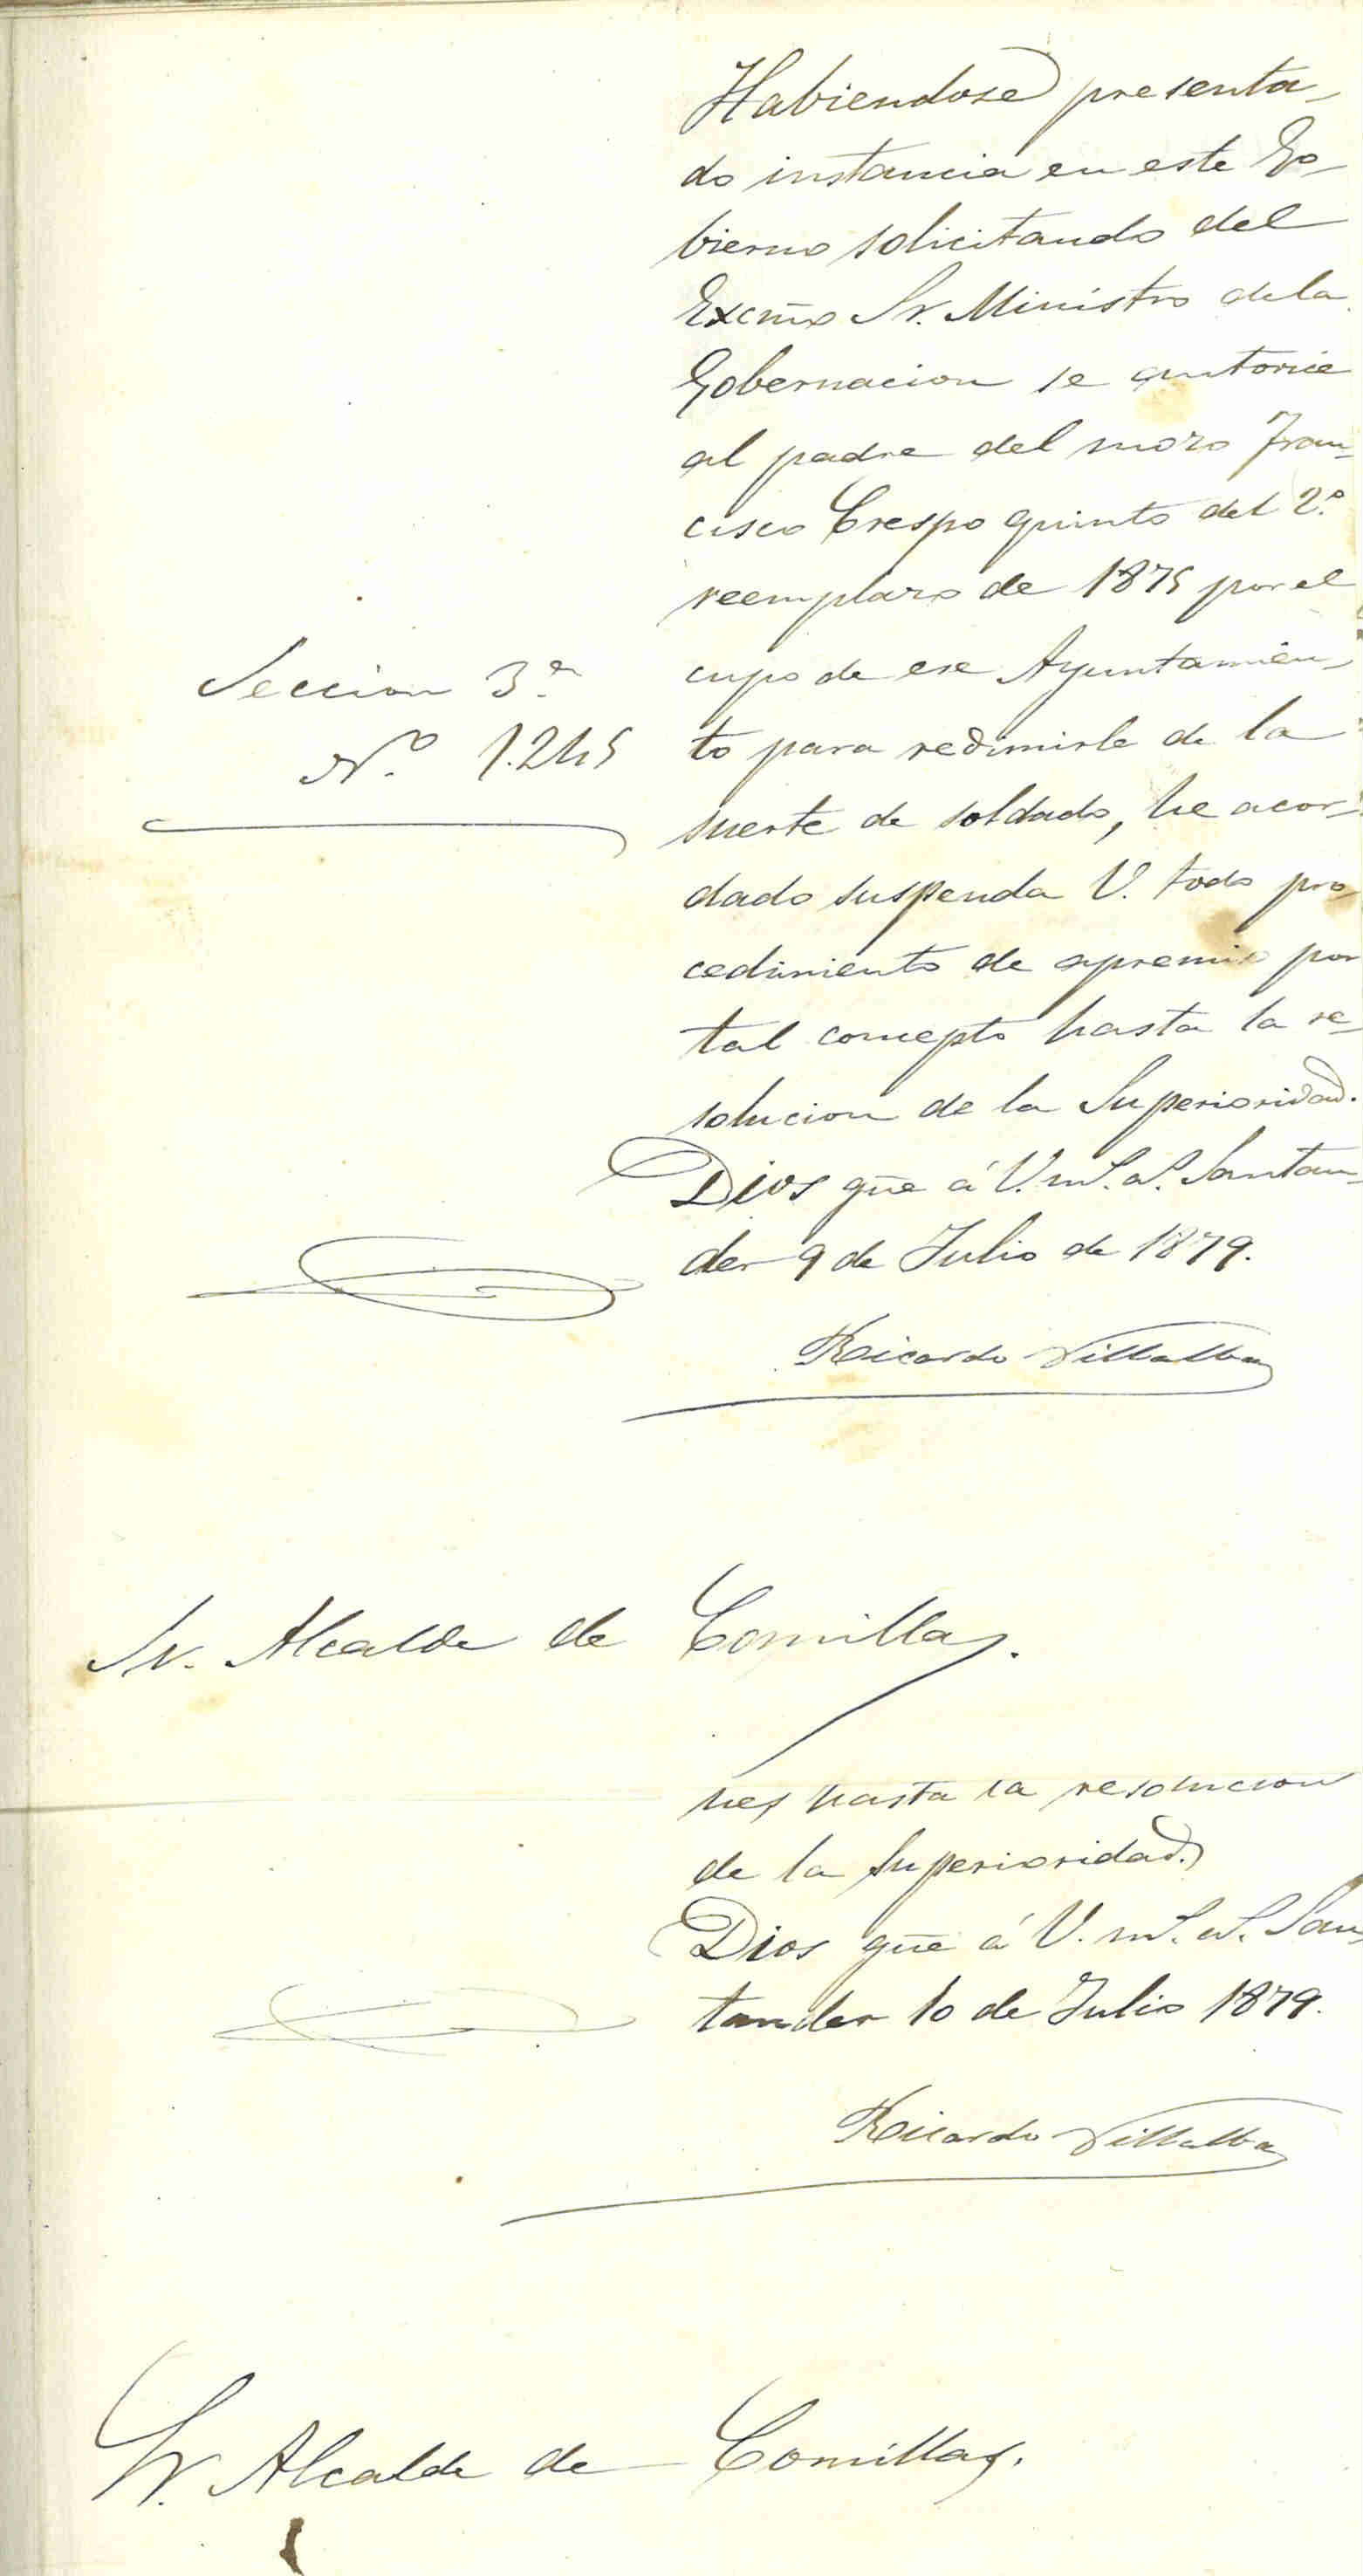 Habiendose presenta-
do instancia en este Go-
bierno solicitando del
Excmo Sr. Ministro de la
Gobernacion se autorice
al padre del mozo Fran-
cisco Crespo quinto del 2º
reemplazo de 1875 por el
cupo de ese Ayuntamien-
to para redimirle de la
suerte de soldado, he acor-
dado suspenda V. todo pro-
cedimiento de apremio por
tal concepto hasta la re-
solucion de la Superioridad.
Dios gũe á V. m.s a.s Santan-
der 9 de Julio de 1879.
Ricardo Villalba
Seccion 3ª
Nº 1.245
Sr. Alcalde de Comillas.
nes hasta la resolucion
de la Superioridad.
Dios gũe á V. m.s a.s San-
tander 10 de Julio 1879.
Ricardo Villalba
Sr. Alcalde de Comillas.